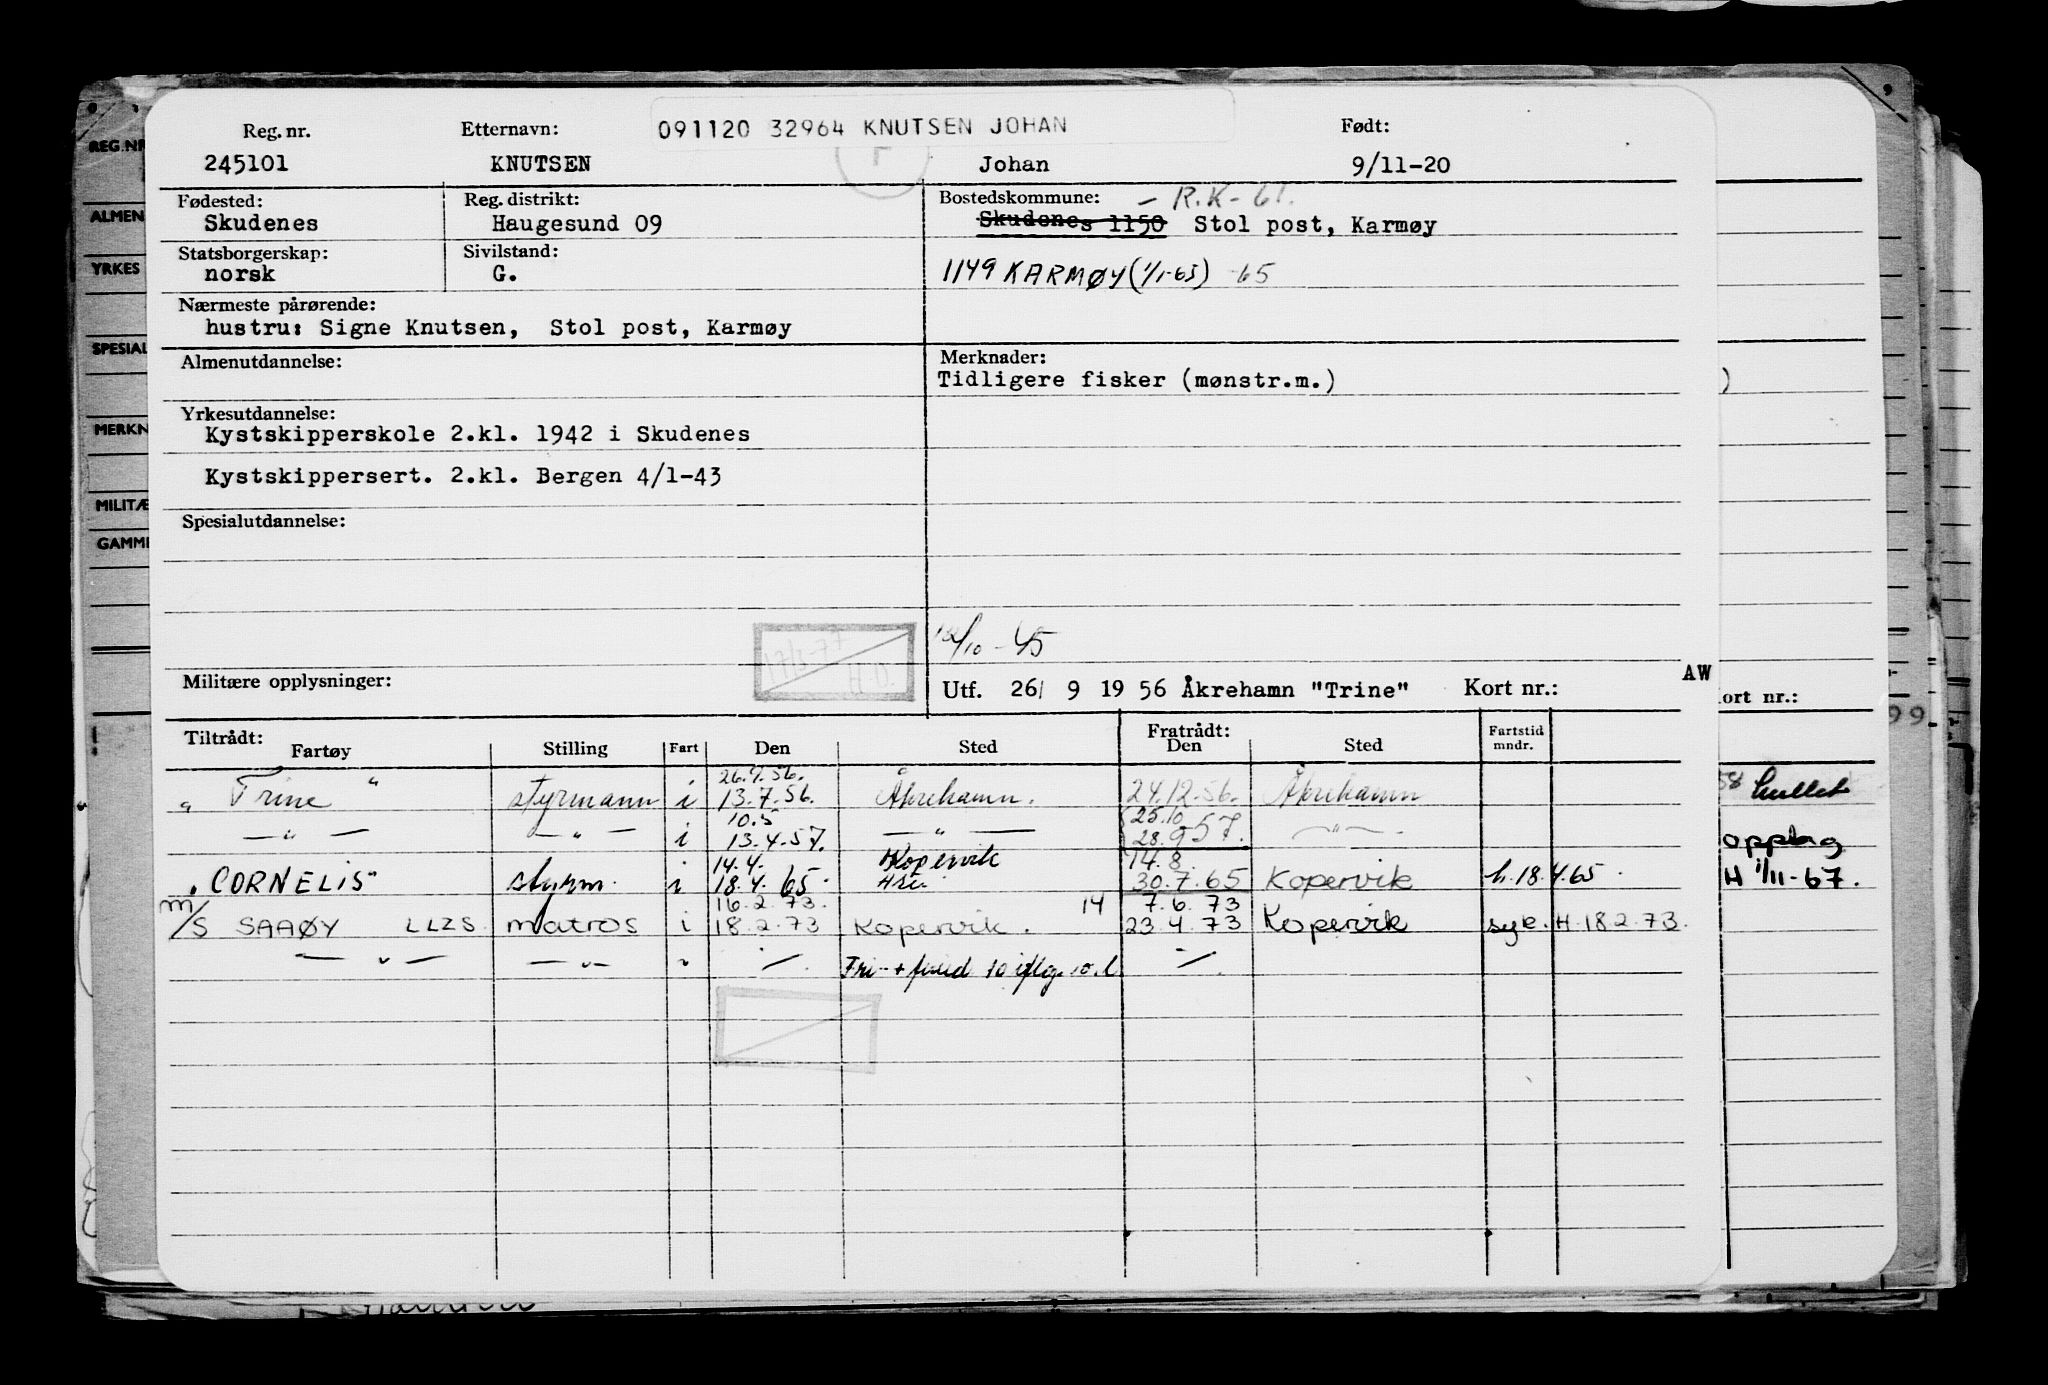 091120 32964 KNUTSEN JOHAN
Reg. nr. Etternavn: Født:
245101 KNUTSEN Johan 9/11-20
Fødested: Reg. distrikt: Bostedskommune: - R.K-61.
Skudenes Haugesund 09 Skudenes 1150 Stol post, Karmøy
Statsborgerskap: Sivilstand:
norsk G. 1149 KARMØY (1/1-65) -65
Nærmeste pårørende:
hustru: Signe Knutsen, Stol post, Karmøy
Almenutdannelse: Merknader:
Tidligere fisker (mønstr.m.) )
Yrkesutdannelse:
Kystskipperskole 2.kl. 1942 i Skudenes
Kystskippersert. 2.kl. Bergen 4/1-43
Spesialutdannelse:
/10-45
17/3-77
H.O.
Militære opplysninger: Utf. 26/ 9 19 56 Åkrehamn "Trine" Kort nr.: AW
ort nr.:
99
Tiltrådt: Fratrådt:
Fartøy Stilling Fart Den Sted Den Sted Fartstid mndr.
26.9.56.
" Trine " styrmann i 13.7.56. Åkrehamn. 24.12.56. Åkrehamn
10.5 25.10
— " — — " — i 13.4.57. — " — 28.9 57. — " —
14.4. Kopervik 14.8.
"CORNELIS" styrm. i 18.4.65 30.7.65 Kopervik h.18.4.65
16.2.73. 14 7.6.73
M/S SAAØY LLZS matros i 18.2.73 Kopervik. 23 4.73 Kopervik syk. H-18 2.73.
— " — — " — " — . Fri- + —.
opplag
H 1/11-67.
REG.NR
ALMEN
YRKES
SPESIAL
MERKN
MILITÆ
GAMME